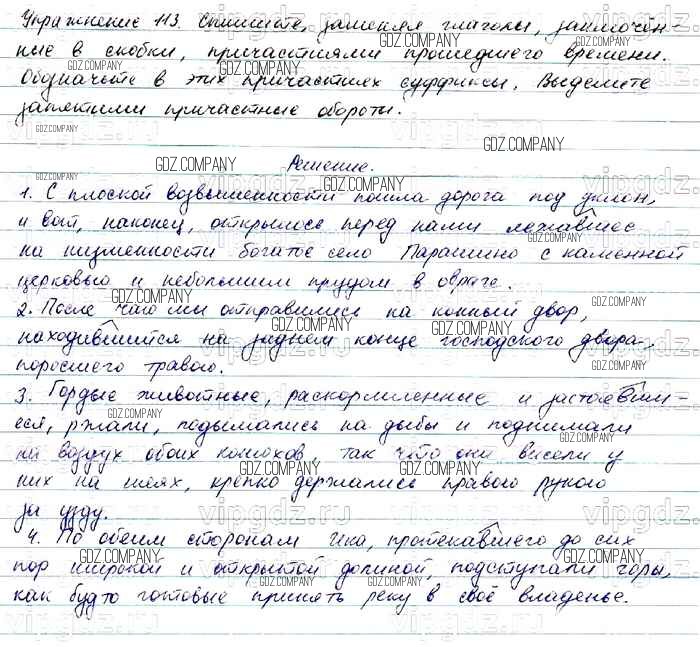 Упражнение 113. Спишите, заменяя глаголы, заключён
ные в скобки, причастиями прошедшего времени.
Обозначьте в этих причастиях суффиксы. Выделите
запятыми причастные обороты.
Решение.
1. С плоской возвышенности пошла дорога под уклон,
и вот, наконец, открылось перед нами лежавшее
на низменности богатое село Парашино с каменной
церковью и небольшим прудом в овраге.
2. После чаю мы отправились на конный двор,
находившийся на заднем конце господского двора,
поросшего травою.
3. Гордые животные, раскормленные и застоявши-
еся, ржали, подымались на дыбы и поднимали
на воздух обоих конюхов, так что они висели у
них на шеях, крепко держались правою рукою
за узду.
4. По обеим сторонам Ика, протекавшего до сих
пор широкой и открытой долиной, подступали горы,
как будто готовые принять реку в своё владенье.
GDZ.COMPANY
vipgdz.ru